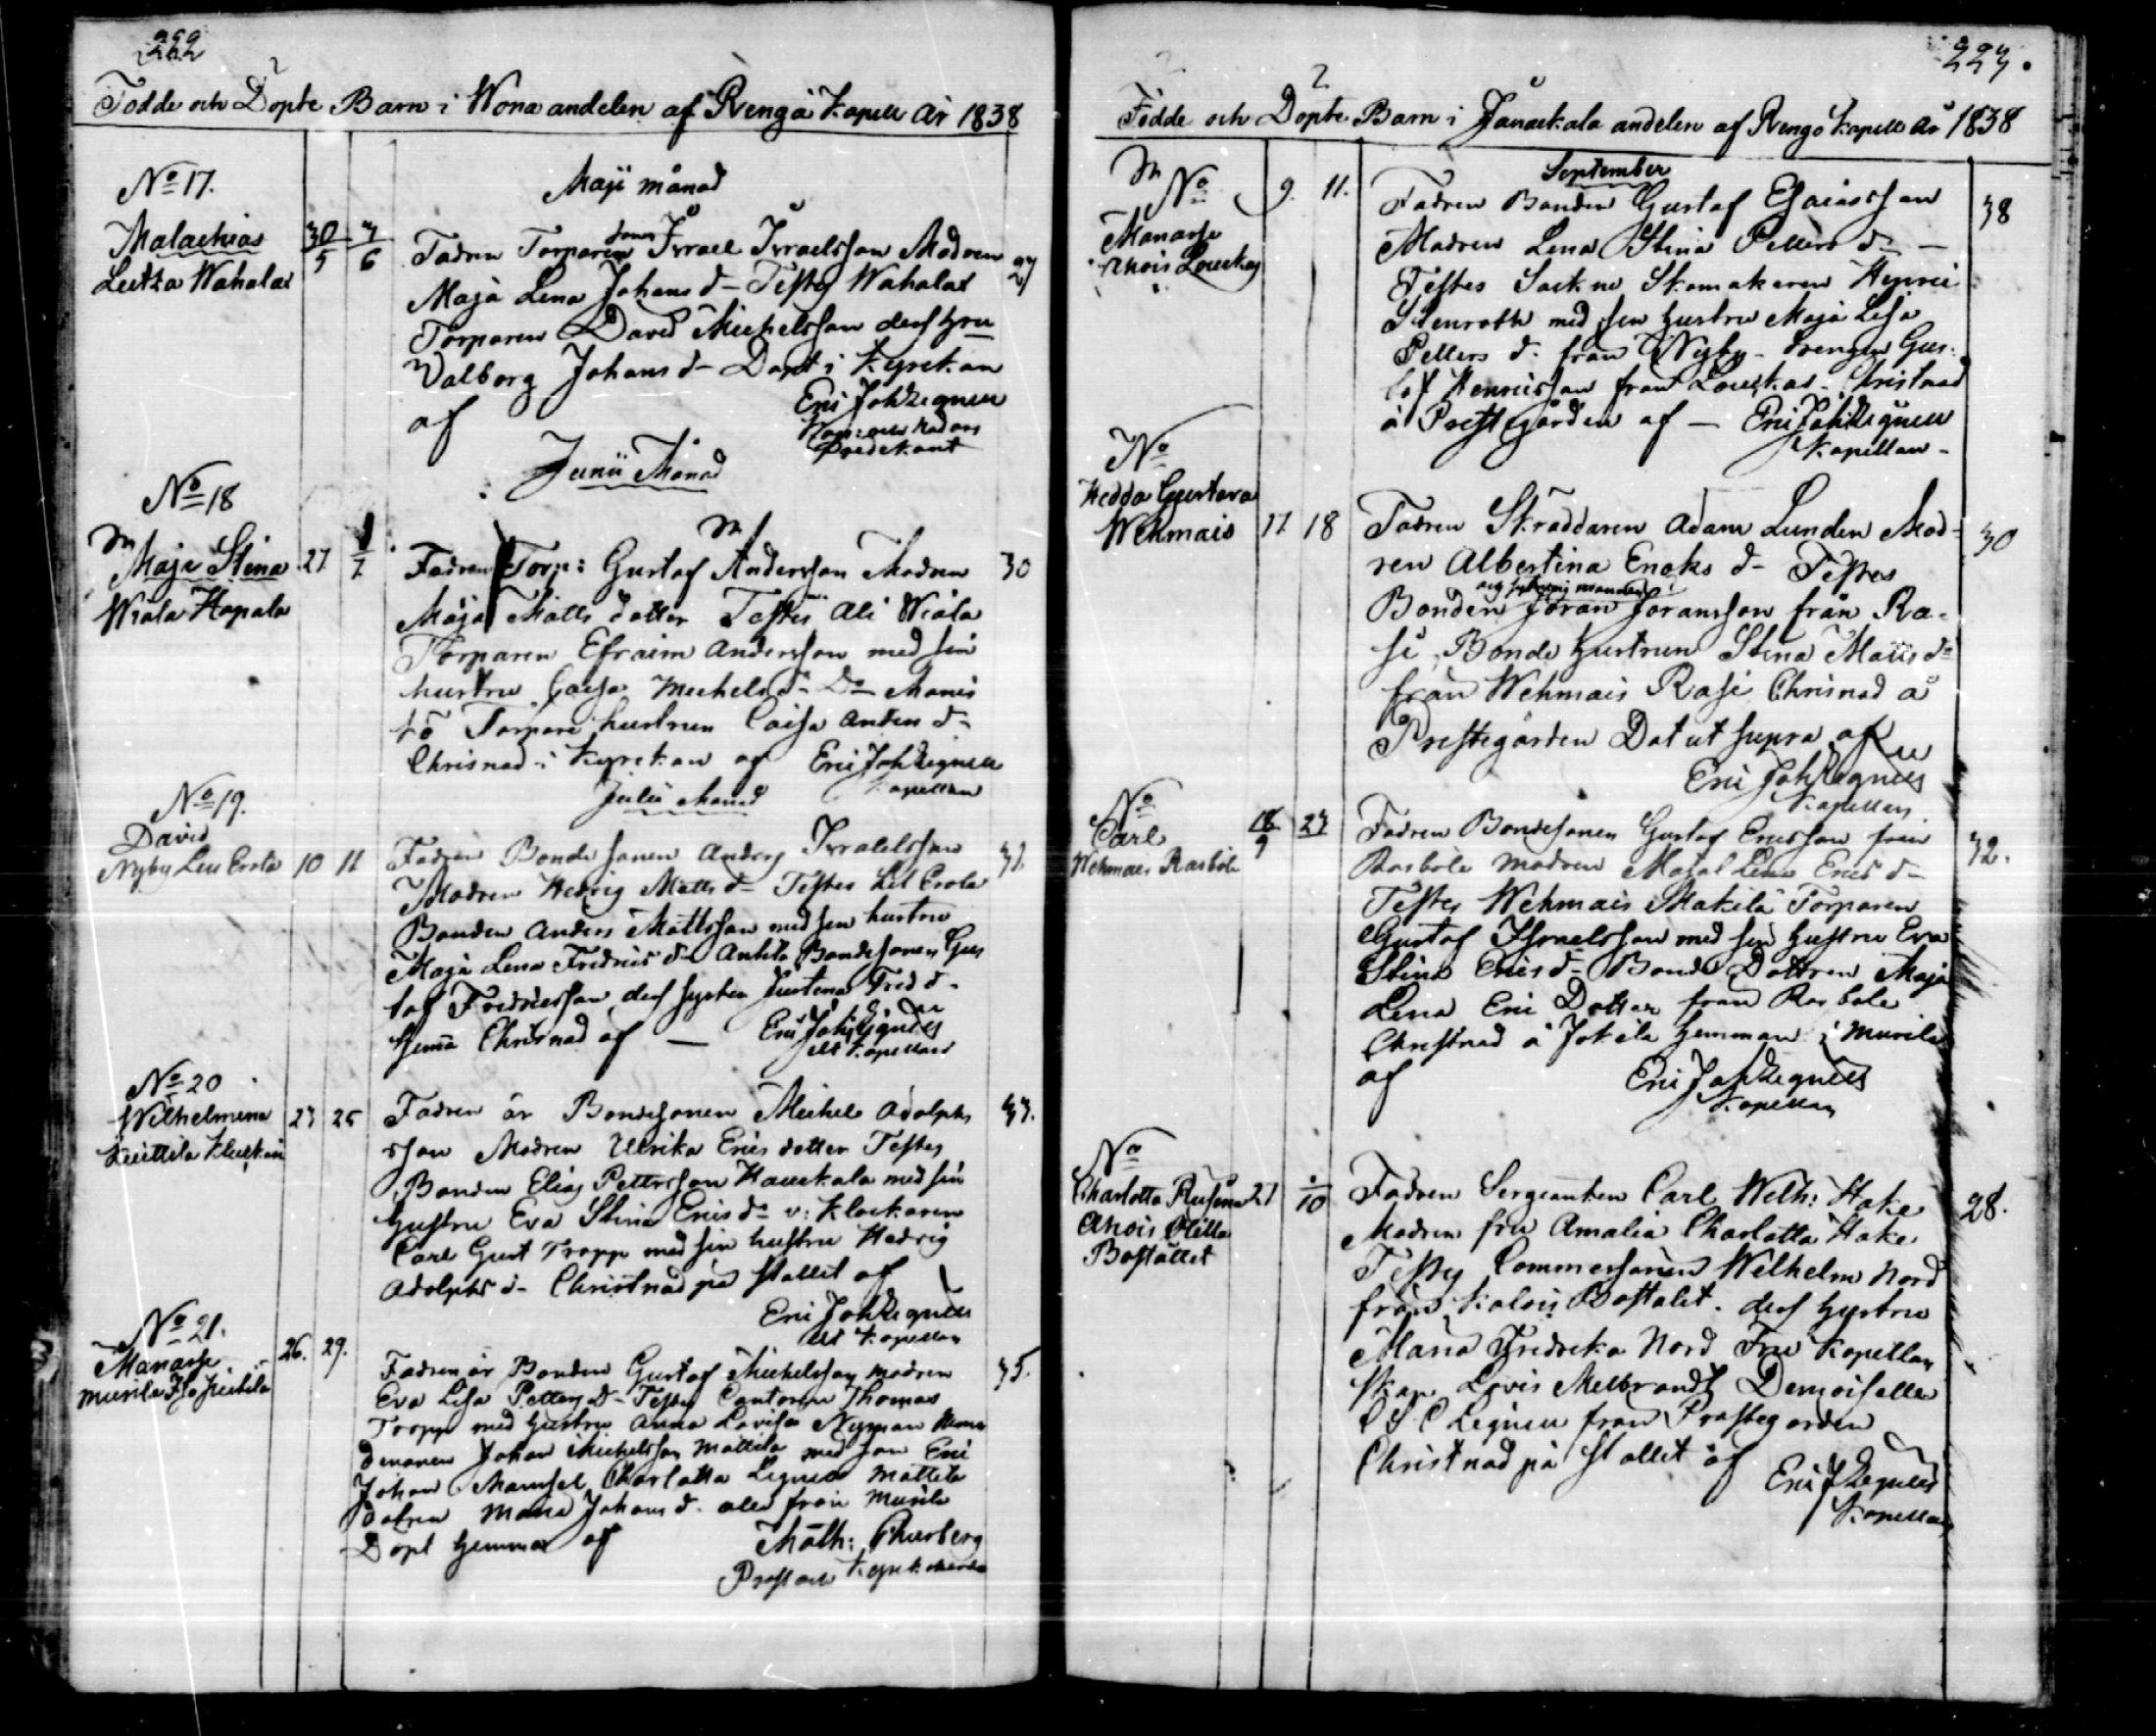 222
Födde och Döpte Barn i Wona andelen af Rengå Kapell År 1838
No 17.
Maji månad
Malachias 30/5 3/6
Lutza Wahalax
Fadren Torparen sonen Israel Israelsson Modren 27
Maja Lena Johans d- Testes Wahalax
Torparen David Michelsson dess hru
Valborg Johans d- Döpt i Kyrckan
af Eric Joh Zegneus
Predikant
Junii Månad
No 18
Maja Stina 27 1/7
Wiala Hapala
Fadren Torp: Gustaf Andersson Modren 30
Maja Matts dotter Testes Ali Wiala
Torparen Efraim Andersson med sin
hustru Caisa Michels d- Do Manis
tö Torpare hustrun Caisa Anders d-
Chrisnad i Kyrckan af Eric Joh Zegneus
Kapellan
Julii Månad
No 19.
David
Nyby Lill Erola 10 11
Fadren Bonde sonen Anders Israelsson 32
Modren Hedvig Matts d- Testes Lil Erola
Bonden Anders Mattsson med sin hustru
Maja Lena Fredrics d- Anttila Bondesonen Gus
taf Fredricsson, dess syster Justina Fred d-
hema Chrisnad af — Eric Joh Zegneus
Kapellan
No 20
Wilhelmina 23 25
Kuittila
Fadren är Bondesonen Michel Adolphs 33.
sson Modren Ulrika Erics dotter Testes
Bonden Elias Pettersson Hauckala med sin
hustru Eva Stina Erics d- v: Klockaren
Carl Gust Tropp med sin hustru Hedvig
Adolphs d- Christnad på stallet af
Eric Joh Zegneus
Kapellan
No 21.
Manasse 26. 29.
Murila
Fadren är Bonden Gustaf Michelsson modren 35.
Eva Lisa Petters d- Testes Cantoren Thomas
Tropp med hustru Anna Lovisa Nyman
Johan Michelsson Mattila med son Eric
Johan Mamsel Charlotta Zegneus Mattila
dotren Maria Johans d. alla från Murila
Döpt hemma af Math: Thurberg
Prost och Kyrkoherde
223.
Födde och Döpte Barn i Janackala andelen af Rengo Kapell År 1838
September
No 9. 11.
Manasse
Ahois Louckas
Fadren Bonden Gustaf Esaiasson 38
Modren Lena Stina Petters d- —
Testes Sockne Skomakaren Henric
Stenroth med sin hustru Maja Lisa
Petters d. från Nyby- Drengen Gus-
taf Henricsson från Louckas. Christnad
å Prestegården af — Eric Joh Zegneus
Kapellan-
No
Hedda Gustava
Wehmais 17. 18
Fadren Skräddaren Adam Lunden Mod- 30
ren Albertina Enoks d- Testes
Bonden Jöran Joransson från Ra-
si, Bonde hustrun Stina Matts d-
från Wehmais Rasi Chrisnad å
Prestegården Dat ut supra af
Eric Joh Zegneus
Kapellan
No
Carl 18/9 23
Wehmais Rasböle
Fadren Bondesonen Gustaf Ericsson från 32.
Rasböle modren Lena Erics d-
Testes Wehmais Makila Torparen
Gustaf Israelsson med sin hustru Eva
Stina Erics d- Bonde Dottren Maja
Lena Eric Dotter från Rasbole
Christnad å Jokila hemman i Murila
af Eric Joh Zegneus
Kapellan
No
Charlotta Rusina 21 /10
Ahois
Bostället
Fadren Sergeanten Carl Welh: Hake 28.
Modren fru Amalia Charlotta Hake
Testes Commersanen Wilhelm Nord
från Kalois Bostalet. dess hustru
Maria Fredrika Nord Fru Kapellan
skan Lovis Melbrandt Demoiselle
C S C Zegneus från Prostegorden
Christnad på stallet af Eric J Zegneus
Kapellan